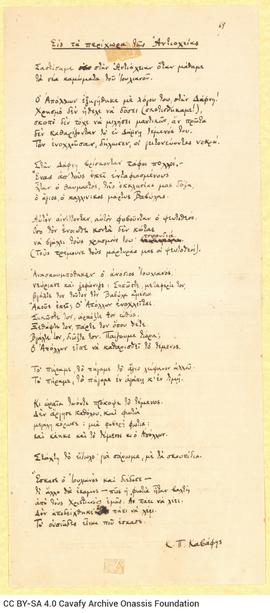 69
Εις τα περίχωρα της Αντιοχείας
Σαστίσαμε στην Αντιόχειαν όταν μάθαμε
τα νέα καμώματα του Ιουλιανού.
Ο Απόλλων εξηγήθηκε με λόγου του, στην Δάφνη!
Χρησμό δεν ήθελε να δώσει (σκοτισθήκαμε!),
σκοπό δεν τόχε να μιλήσει μαντικώς, αν πρώτα
δεν καθαρίζονταν το εν Δάφνη τέμενός του.
Τον ενοχλούσαν, δήλωσεν, οι γειτονεύοντες νεκροί.
Στην Δάφνη βρίσκονταν τάφοι πολλοί.—
Ένας απ' τους εκεί ενταφιασμένους
ήταν ο θαυμαστός, της εκκλησίας μας δόξα,
ο άγιος, ο καλλίνικος μάρτυς Βαβύλας.
Αυτόν αινίττονταν, αυτόν φοβούνταν ο ψευτοθεός.
Όσο τον ένοιωθε κοντά δεν κόταε
να βγάλει τους χρησμούς του· τσιμουδιά.
(Τους τρέμουνε τους μάρτυράς μας οι ψευτοθεοί.)
Ανασκουμπώθηκεν ο ανόσιος Ιουλιανός,
νεύριασε και ξεφώνιζε: «Σηκώστε, μεταφέρτε τον,
βγάλτε τον τούτον τον Βαβύλα αμέσως.
Ακούς εκεί; Ο Απόλλων ενοχλείται.
Σηκώστε τον, αρπάξτε τον ευθύς.
Ξεθάψτε τον, πάρτε τον όπου θέτε.
Βγάλτε τον, διώξτε τον. Παίζουμε τώρα;
Ο Απόλλων είπε να καθαρισθεί το τέμενος.
Το πήραμε, το πήγαμε το άγιο λείψανον αλλού.
Το πήραμε, το πήγαμε εν αγάπη κ' εν τιμή.
Κι ωραία τωόντι πρόκοψε το τέμενος.
Δεν άργησε καθόλου, και φωτιά
μεγάλη κόρωσε: μια φοβερή φωτιά:
και κάηκε και το τέμενος κι ο Απόλλων.
Στάχτη το είδωλο· για σάρωμα, με τα σκουπίδια.
Έσκασε ο Ιουλιανός και διέδοσε—
τι άλλο θα έκαμνε— πως η φωτιά ήταν βαλτή
από τους Χριστιανούς εμάς. Ας πάει να λέει.
Δεν αποδείχθηκε· ας πάει να λέει.
Το ουσιώδες είναι που έσκασε.
Κ. Π. Καβάφης
CC BY-SA 4.0 Cavafy Archive Onassis Foundation